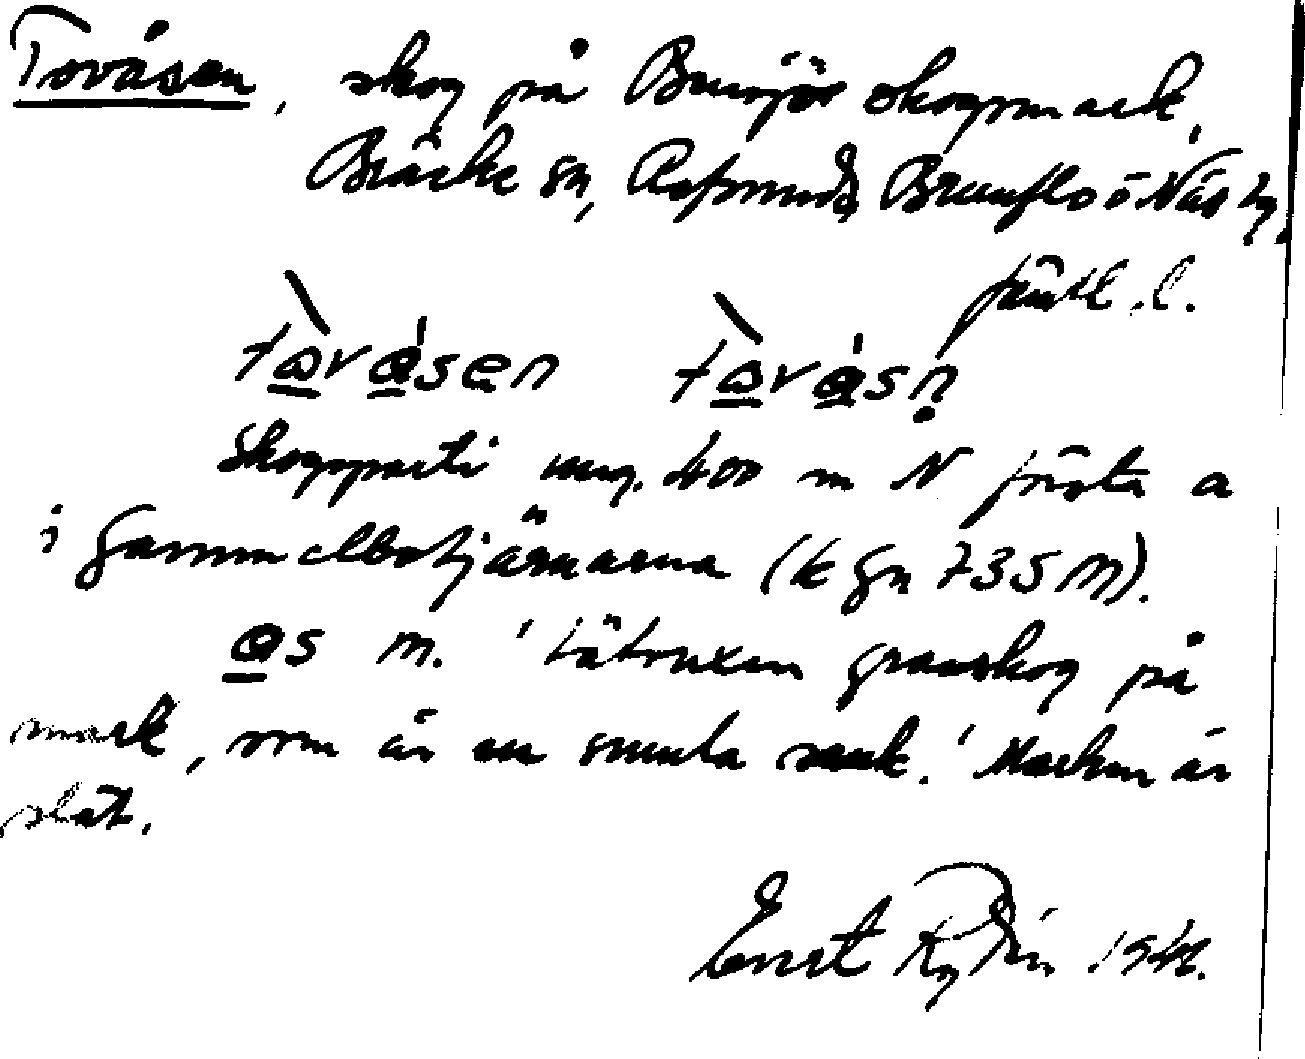 Tovåsen, skog på Bensjös skogsmark,
Bräcke sn, Refsunds, Brunflo o Näs tg,
Jämtl. l.
tòvåsen tòvåsn̥
Skogsparti ung. 400 m N första a
i Gammelbotjärnarna (k gn 735 M).
ås m. 'tätvuxen granskog på
mark, som är en smula sank.' Marken är
slät.
Ernst 194